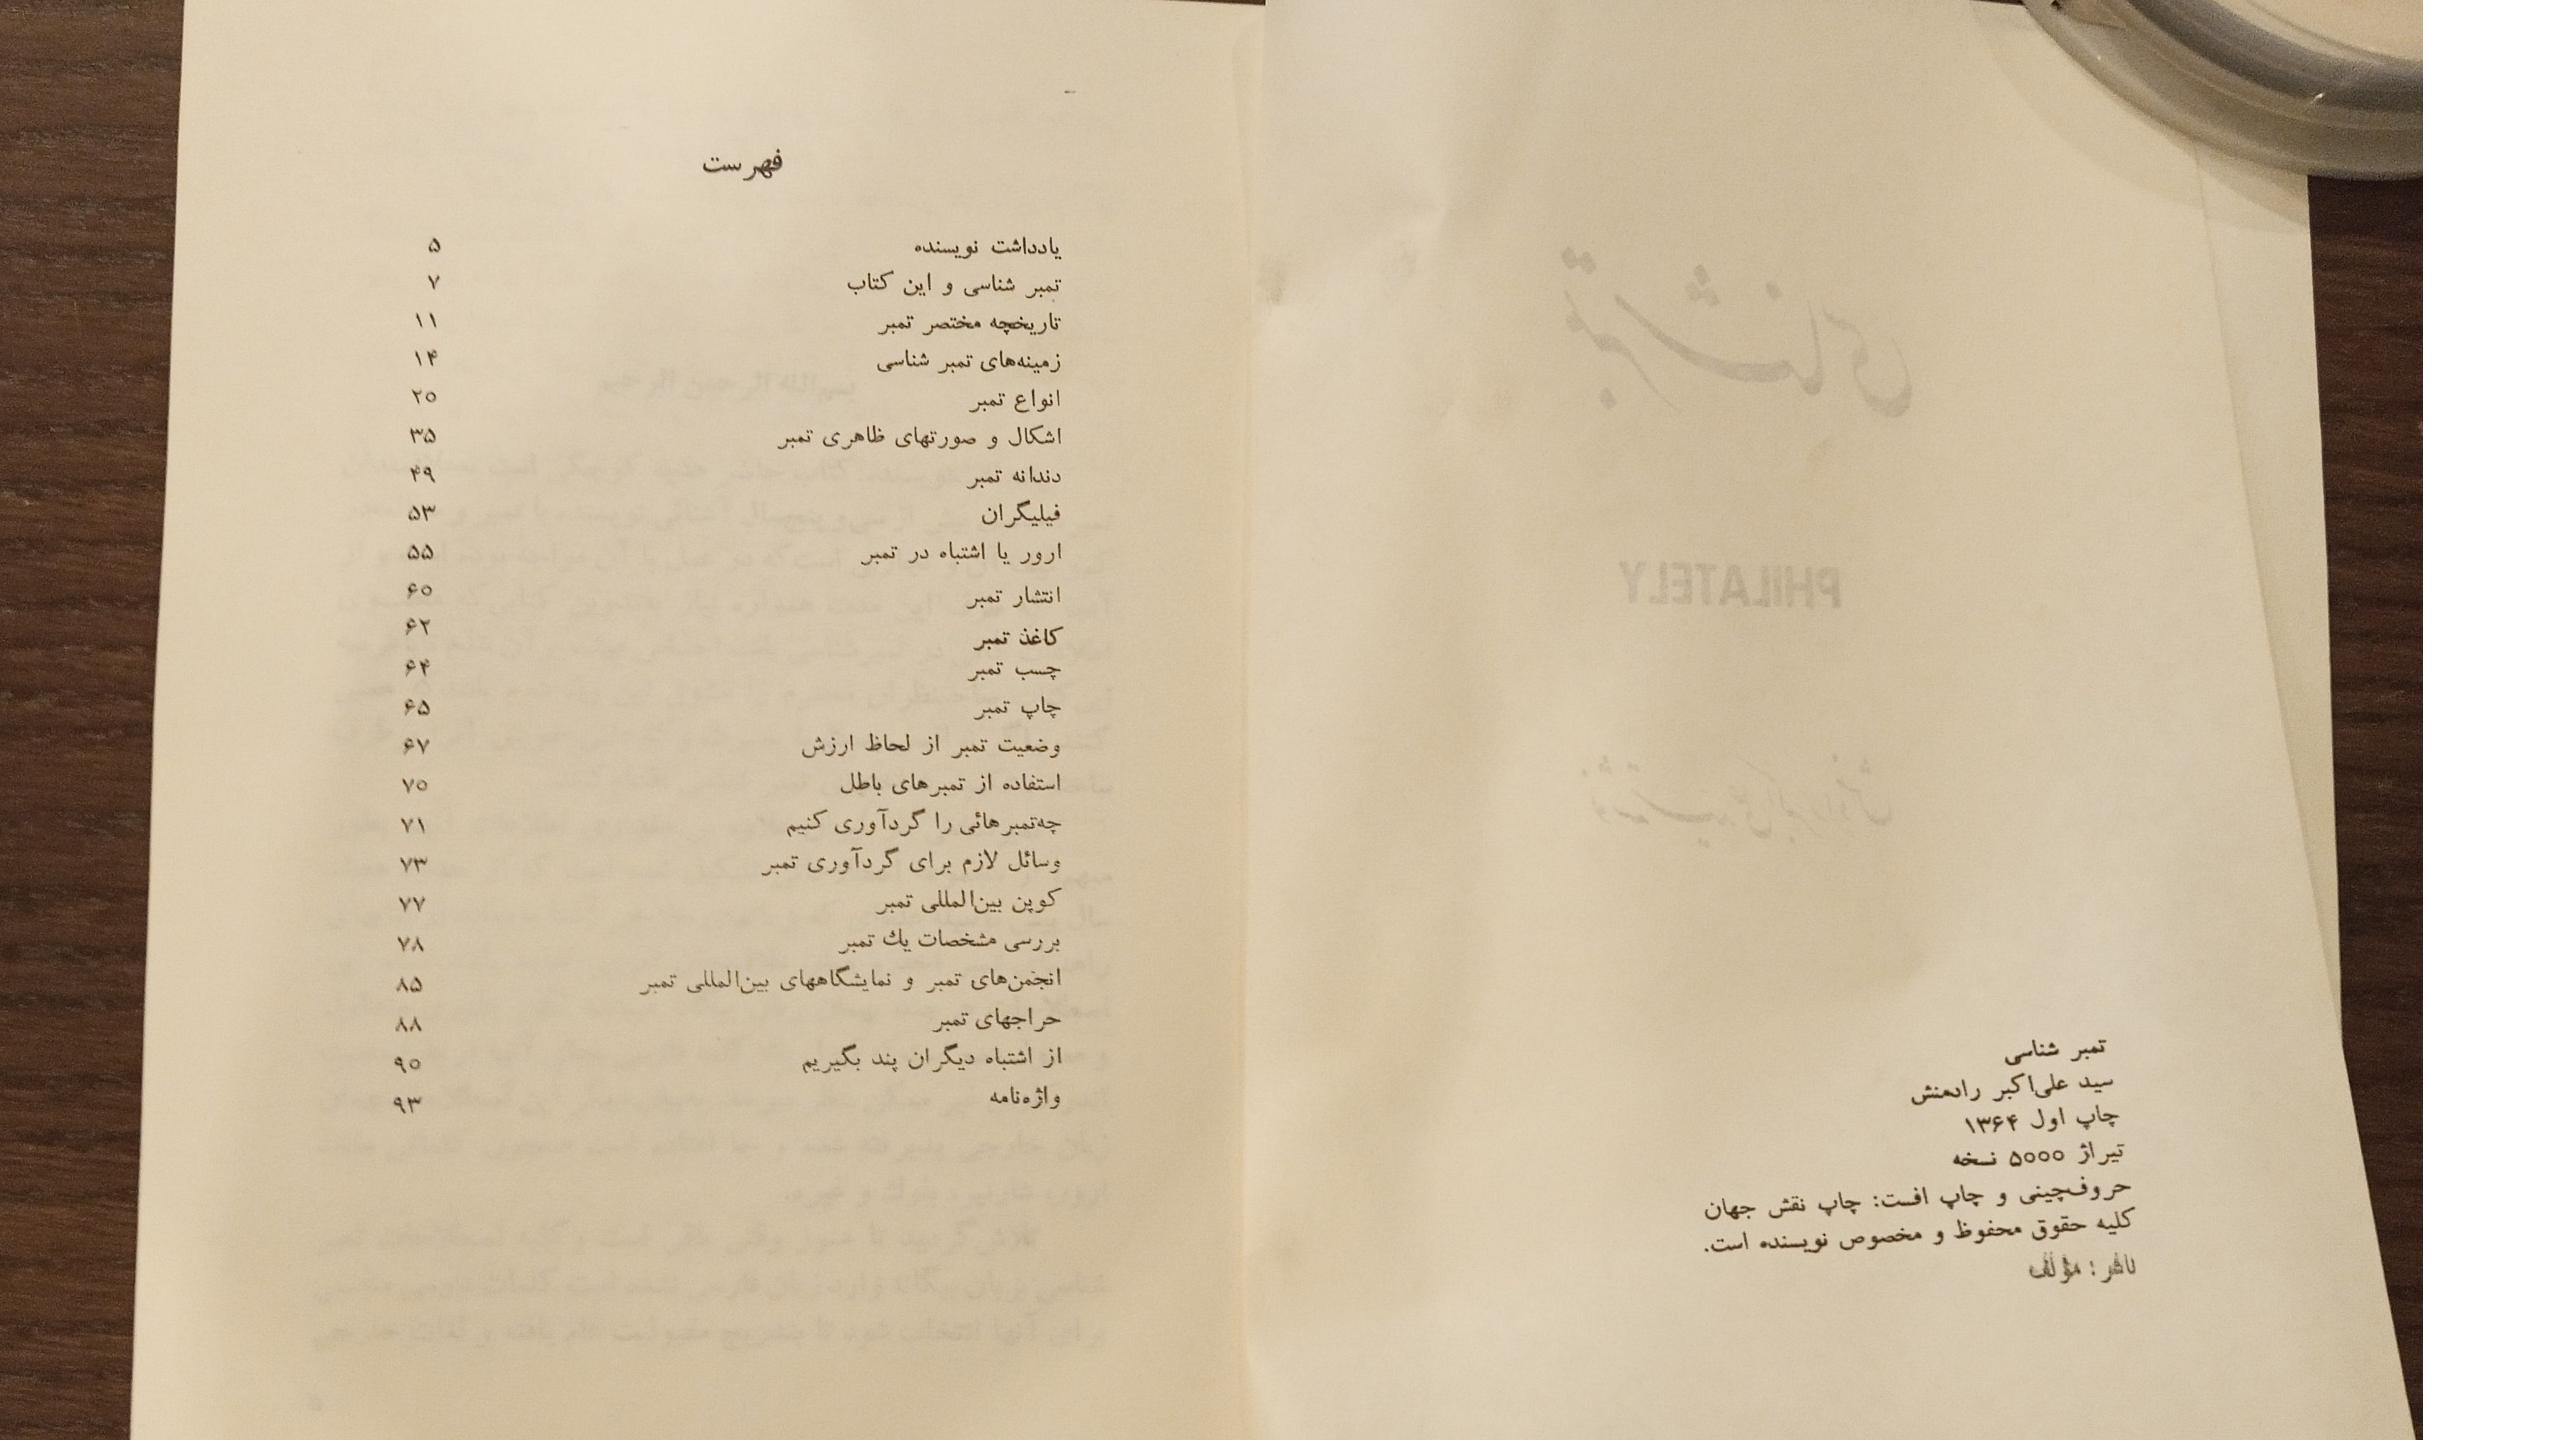 تمبر شناسی
سید علی‌اکبر رادمنش
چاپ اول ۱۳۶۴
تیراژ ۵۰۰۰ نسخه
حروفچینی و چاپ افست: چاپ نقش جهان
کلیه حقوق محفوظ و مخصوص نویسنده است.
ناشر : مؤلف
فهرست
یادداشت نویسنده ۵
تمبر شناسی و این کتاب ۷
تاریخچه مختصر تمبر ۱۱
زمینه‌های تمبر شناسی ۱۴
انواع تمبر ۲۰
اشکال و صورتهای ظاهری تمبر ۳۵
دندانه تمبر ۴۹
فیلیگران ۵۳
ارور یا اشتباه در تمبر ۵۵
انتشار تمبر ۶۰
کاغذ تمبر ۶۲
چسب تمبر ۶۴
چاپ تمبر ۶۵
وضعیت تمبر از لحاظ ارزش ۶۷
استفاده از تمبرهای باطل ۷۰
چه‌تمبرهائی را گردآوری کنیم ۷۱
وسائل لازم برای گردآوری تمبر ۷۳
کوپن بین‌المللی تمبر ۷۷
بررسی مشخصات یك تمبر ۷۸
انجمن‌های تمبر و نمایشگاههای بین‌المللی تمبر ۸۵
حراجهای تمبر ۸۸
از اشتباه دیگران پند بگیریم ۹۰
واژه‌نامه ۹۳